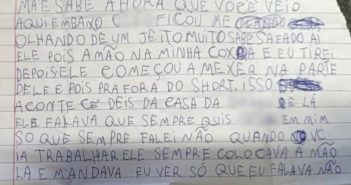 MÃE SABE AHORA QUE VOCÊ VEIO
AQUI EMBAXO FICOU ME
OLHANDO DE UM JEITO MUITO SABE SAFADO AI
ELE POIS A MÃO NA MINHA COXA E EU TIREI
DEPOIS ELE COMEÇOU A MEXER NA PARTE
DELE E POIS PRA FORA DO SHORT. ISSO
ACONTECE DEIS DA CASA DA DE LÁ
ELE FALAVA QUE SEMPRE QUIS EM MIM
SO QUE SEMPRE FALEI NÃO QUANDO VC
IA TRABALHAR ELE SEMPRE COLOCAVA A MÃO
LA E MANDAVA EU VER SO QUE EU FALAVA NÃO